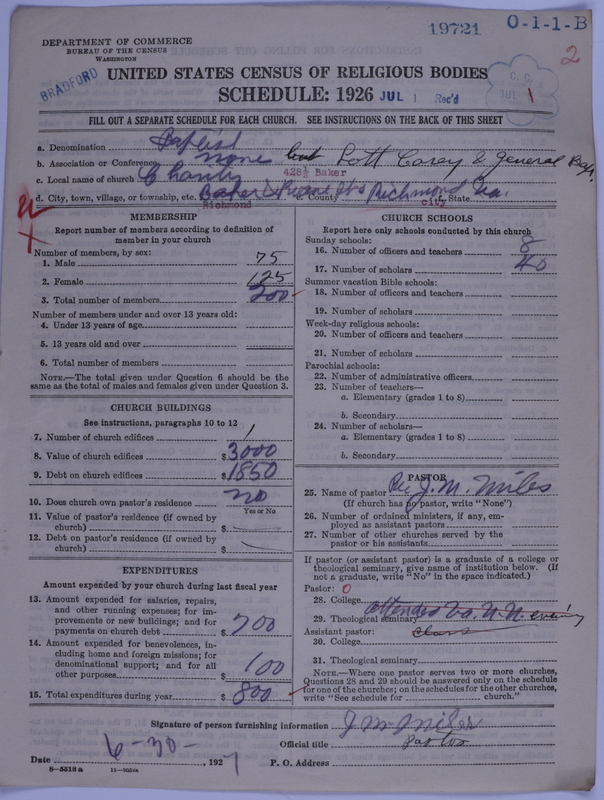 19721 O-1-1-B
2
DEPARTMENT OF COMMERCE
BUREAU OF THE CENSUS
WASHINGTON
BRADFORD
UNITED STATES CENSUS OF RELIGIOUS BODIES
SCHEDULE: 1926 JUL 1 Rec'd
C. C. JUL 1
FILL OUT A SEPARATE SCHEDULE FOR EACH CHURCH. SEE INSTRUCTIONS ON THE BACK OF THIS SHEET
a. Denomination Baptist
b. Association or Conference none but Lott Carey & General Bap.
c. Local name of church Charity 428½ Baker
d. City, town, village, or township, etc. Baker & St's County Richmond State Va.
Richmond city
MEMBERSHIP
Report number of members according to definition of member in your church
Number of members, by sex:
1. Male 75
2. Female 125
3. Total number of members 200
Number of members under and over 13 years old:
4. Under 13 years of age
5. 13 years old and over
6. Total number of members
NOTE.—The total given under Question 6 should be the same as the total of males and females given under Question 3.
CHURCH BUILDINGS
See instructions, paragraphs 10 to 12
7. Number of church edifices 1
8. Value of church edifices $3000
9. Debt on church edifices $1850
10. Does church own pastor's residence no
Yes or No
11. Value of pastor's residence (if owned by church) $
12. Debt on pastor's residence (if owned by church) $
EXPENDITURES
Amount expended by your church during last fiscal year
13. Amount expended for salaries, repairs, and other running expenses; for improvements or new buildings; and for payments on church debt $700
14. Amount expended for benevolences, including home and foreign missions; for denominational support; and for all other purposes $100
15. Total expenditures during year $800
CHURCH SCHOOLS
Report here only schools conducted by this church
Sunday schools:
16. Number of officers and teachers 8
17. Number of scholars 40
Summer vacation Bible schools:
18. Number of officers and teachers
19. Number of scholars
Week-day religious schools:
20. Number of officers and teachers
21. Number of scholars
Parochial schools:
22. Number of administrative officers
23. Number of teachers—
a. Elementary (grades 1 to 8)
b. Secondary
24. Number of scholars—
a. Elementary (grades 1 to 8)
b. Secondary
PASTOR
25. Name of pastor J. M. Miles
(If church has no pastor, write "None")
26. Number of ordained ministers, if any, employed as assistant pastors
27. Number of other churches served by the pastor or his assistants
If pastor (or assistant pastor) is a graduate of a college or theological seminary, give name of institution below. (If not a graduate, write "No" in the space indicated.)
Pastor: 0
28. College
29. Theological seminary attended Va. U. evening
Assistant pastor: class
30. College
31. Theological seminary
NOTE.—Where one pastor serves two or more churches, Questions 28 and 29 should be answered only on the schedule for one of the churches; on the schedules for the other churches, write "See schedule for church."
Signature of person furnishing information J M Miles
Official title Pastor
Date 6-30-, 1927 P. O. Address
8-5518a 11-9554a